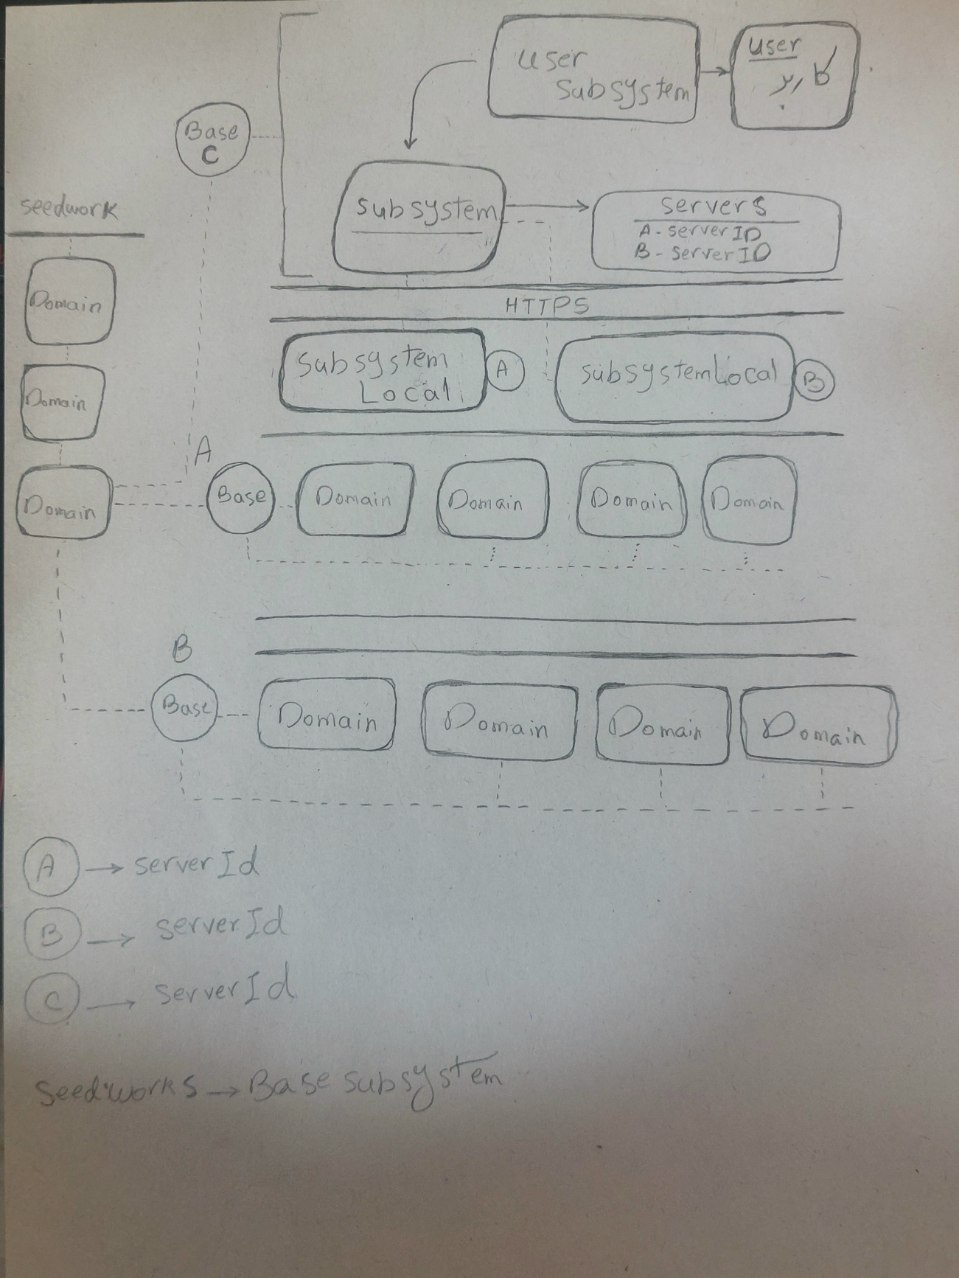 user
subsystem
user
کاربر
Base
C
subsystem
servers
A - serverID
B - serverID
seedwork
Domain
Domain
Domain
HTTPS
subsystem
Local
A
subsystemLocal
B
A
Base
Domain
Domain
Domain
Domain
B
Base
Domain
Domain
Domain
Domain
A → serverId
B → serverId
C → serverId
seedworks → Base subsystem